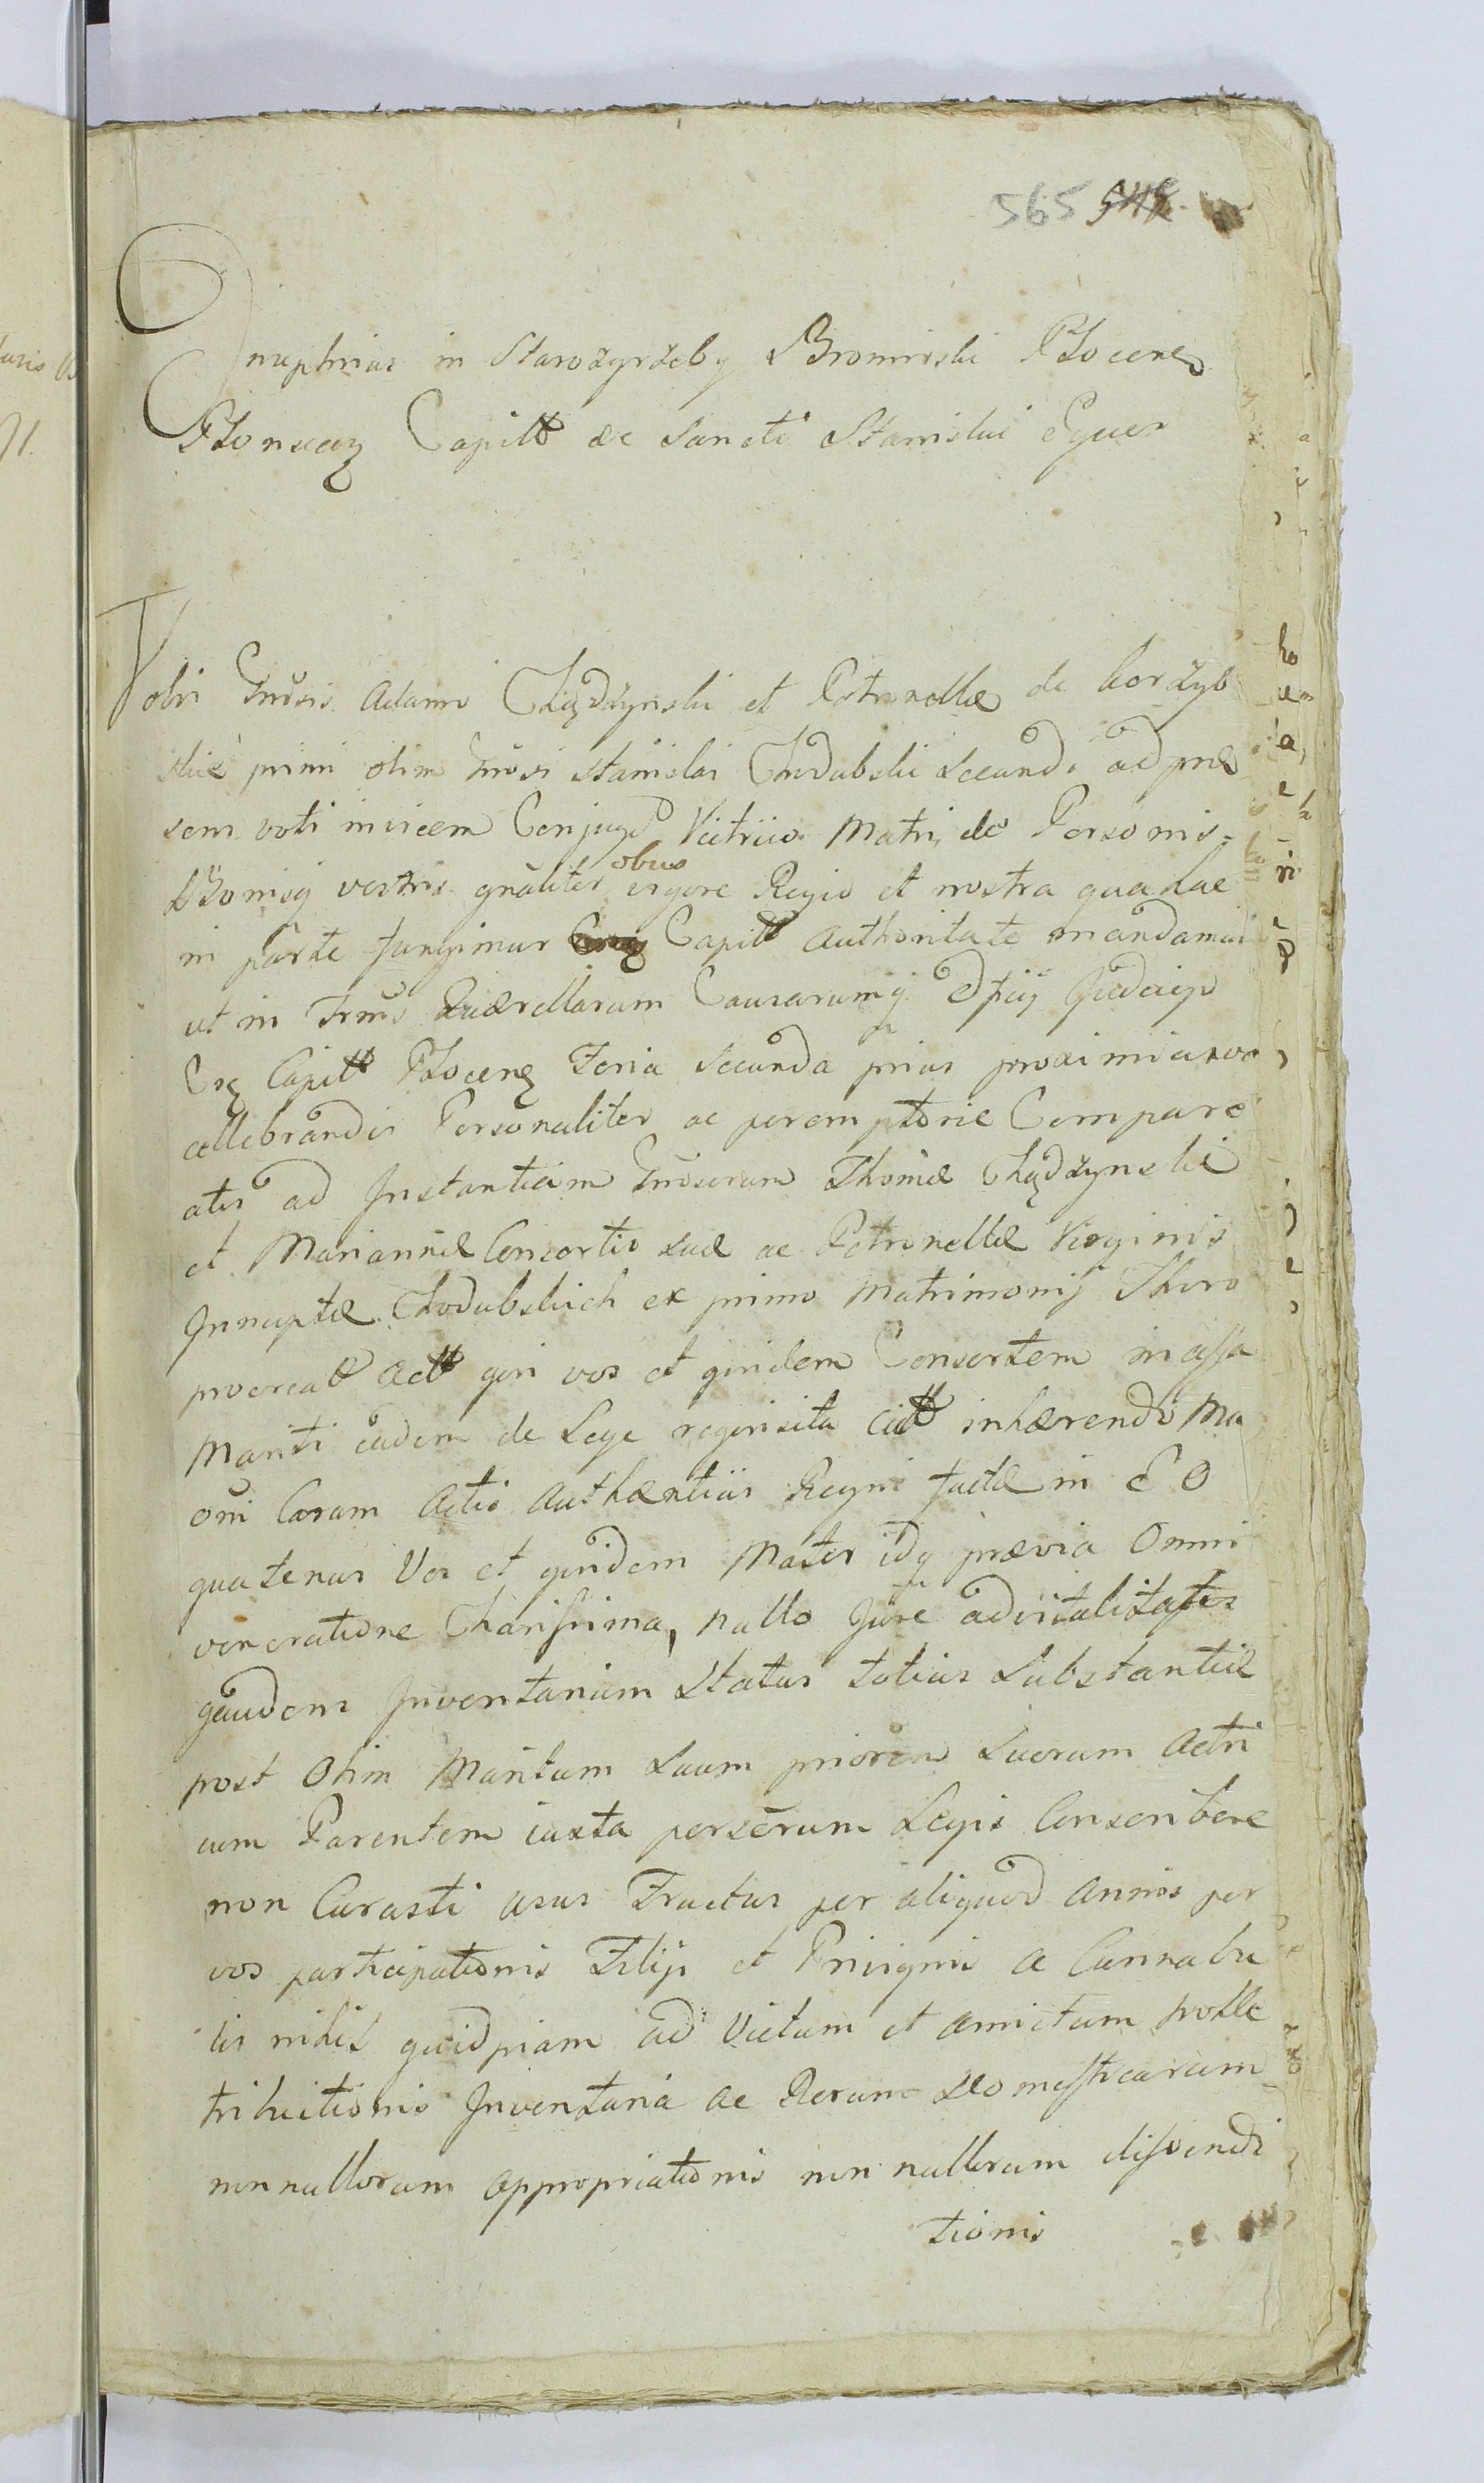 565 548
Onuphrius in Starożyrżeby Bromirski Płocens
Płonscen Capitt ac Sancti Stanislai Eques
Vobis Gnosis Adamo Chądżynski et Petronellæ de Korżyb
skie primi olim Gnosi Stanislai Chodubski secundi ad præ
sens voti invicem Conjugd Vitrico Matri, de Personis-
Bonisq vestris gnaliter obus vigore Regia et nostra qua hac
in parte fungimur Capitt Authoritate mandamus
ut in Trnis Quærellarum Causarumq Offcij Judicijs
Csq Capitt Płocens Feria Secunda prius proxima
cellebrandis Personaliter ac peremptorie Compare
atis ad Instantiam Gnosorum Thomæ Chądżynski
et Mariannæ Consortis suæ ac Petronellæ Virginis
Innuptæ Chodubskich ex primo Matrimonij Thoro
procreatt Actt qui vos et quidem Consortem in assa
Mariti eadem de Lege requisita Citt inhærendo Ma
oni Coram Actis Authæntiis Regni factæ in E O
quatenus Vos et quidem Mater idq prævia Omni
veneratione Charissima, nullo Jure advitalitatis
gaudens Inventarium Status totius Substantiæ
post Olim Maritum Suum priorem Suorum Acto
rum Parentem iuxta perscrum Legis Conscribere
non Curasti usus Fructus per aliquod annos per
vos participationis Filijs et Privignis a Cunnabu
lis nihil quidpiam ad Victum et amictum prolle
tribuitionis Inventaria ac Rerum Domesticarum
nonnullorum appropriationis non nullorum disvendi
tionis